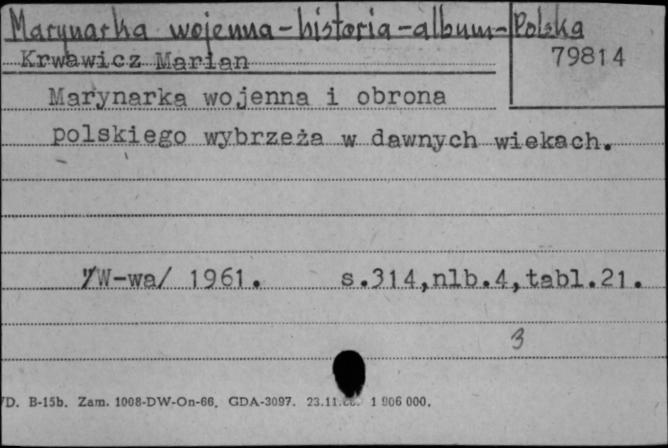 Marynarka wojenna-historia-album-Polska
Krwawicz Marian
79814
Marynarka wojenna i obrona
polskiego wybrzeża w dawnych wiekach.
/W-wa/ 1961. s.314,nlb.4,tabl.21.
3
D. B-15b. Zam. 1008-DW-On-66. GDA-3097. 23.11. 1 906 000.